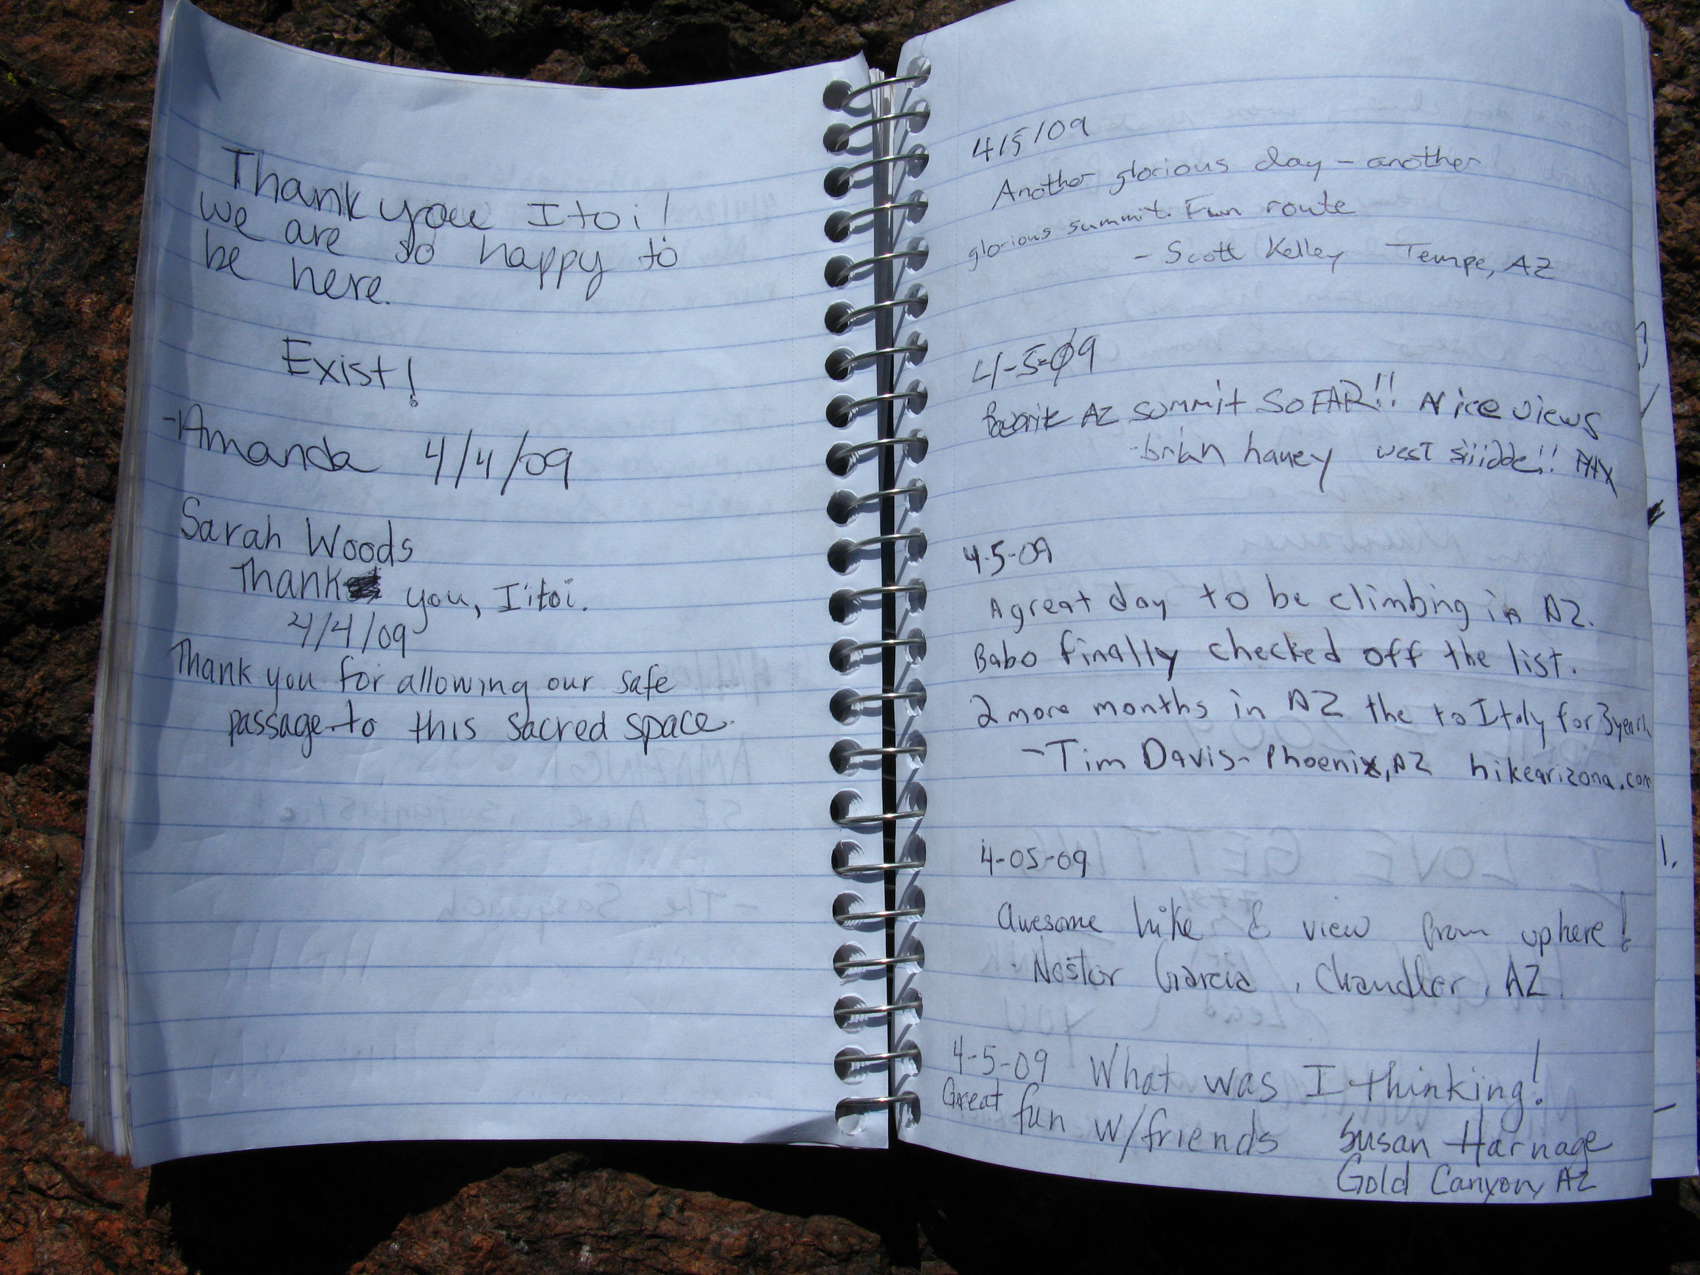 Thank you Itoi!
we are so happy to
be here.
Exist!
-Amanda 4/4/09
Sarah Woods
Thank you, I'itoi.
4/4/09
Thank you for allowing our safe
passage to this sacred space.
4/5/09
Another glorious day - another
glorious summit. Fun route
- Scott Kelley Tempe, AZ
4-5-09
favorite AZ summit SO FAR!! Nice views
-brian haney west siiidde!!
4-5-09
A great day to be climbing in AZ.
Babo finally checked off the list.
2 more months in AZ the to Italy for 3 years
-Tim Davis- Phoenix, AZ hikearizona.com
4-05-09
Awesome hike & view from up here!
- Nestor Garcia, Chandler, AZ.
4-5-09 What was I thinking!
Great fun w/friends Susan Harnage
Gold Canyon, AZ